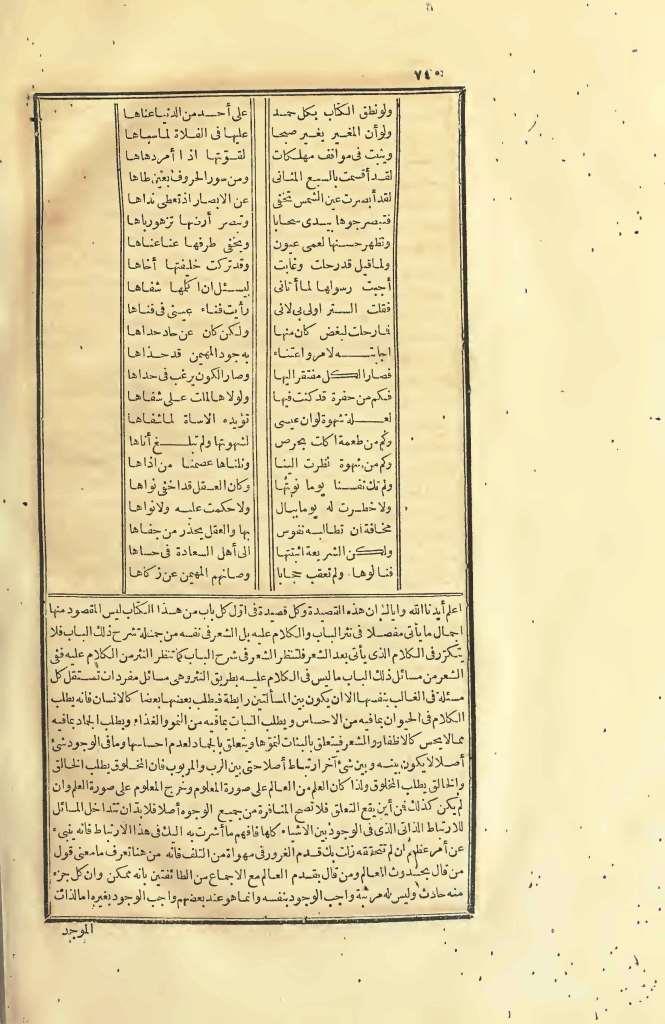 ٧٤٥
ولو نطق الكتاب بكل حمد على أحد من الدنيا عناها
ولو أن المغير يغير صبحا عليها فى الفلاة لما سباها
ويثبت فى مواقف مهلكات لقوتها اذا أمر دهاها
لقد أقسمت بالسبع المثانى ومن سور الحروف بعين طاها
لقد أبصرت عين الشمس تخفى عن الابصار اذ تعطى نداها
فتبصر جوها يبدى سحابا وتبصر أرضها تزهو رباها
وتظهر حسنها لعمى عيون ويخفى طرفها عنا عناها
ولما قيل قد رحلت وغابت وقد تركت خليفتها أخاها
أجبت رسولها لما أتانى ليسئل ان اكلمها شفاها
فقلت الستر اولى بى لانى رأيت فناء عيسى فى فناها
فما رحلت لبغض كان منها ولكن كان عن حاد حداها
اجابته لامر واعتناء به جود المهيمن قد حذاها
فصار الكل مفتقرا اليها وصار الكون يرغب فى حداها
فكم من حفرة قد كنت فيها ولولاها لمات على شفاها
لعلة شهوة لو ان عيسى تؤيده الاساة لما شفاها
وكم من طعمة اكلت بحرص لشهوتها ولم تبلغ أناها
وكم من شهوة نظرت الينا ونلناها عصمنا من اذاها
ولم تك نفسنا يوما نوتها وكان العقل قد أخفى نواها
ولا خطرت له يوما ببال ولا حكمت عليه ولا نواها
مخافة ان تطالبه نفوس بها والعقل يحذر من جفاها
ولكن الشريعة اثبتتها الى أهل السعادة فى حساها
فنالوها ولم تعقب حجابا وصانهم المهيمن عن زكاها
اعلم أيدنا الله واياك ان هذه القصيدة وكل قصيدة فى اول كل باب من هذا الكتاب ليس المقصود منها
اجمال ما يأتى مفصلا فى نثر الباب والكلام عليه بل الشعر فى نفسه من جملة شرح ذلك الباب فلا
يتكرر فى الكلام الذى يأتى بعد الشعر فلتنظر الشعر فى شرح الباب كما تنظر النثر من الكلام عليه ففى
الشعر من مسائل ذلك الباب ما ليس فى الكلام عليه بطريق النثر وهى مسائل مفردات تستقل كل
مسئلة فى الغالب بنفسها الا ان يكون بين المسألتين رابطة فيطلب بعضها بعضا كالانسان فانه يطلب
الكلام فى الحيوان بما فيه من الاحساس ويطلب النبات بما فيه من النمو والغذاء ويطلب الجماد بما فيه
مما لا يحس كالاظفار والشعر فيتعلق بالنبات لنموها ويتعلق بالجماد لعدم احساسها وما فى الوجود شئ
أصلا لا يكون بينه وبين شئ آخر ارتباط أصلا حتى بين الرب والمربوب فان المخلوق يطلب الخالق
والخالق يطلب المخلوق ولذا كان العلم من العالم على صورة المعلوم وخرج المعلوم على صورة العلم وان
لم يكن كذلك فن أين يقع التعلق فلا تصح المنافرة من جميع الوجوه أصلا فلا بد ان تتداخل المسائل
للارتباط الذاتى الذى فى الوجود بين الاشياء كلها فافهم ما أشرت به اليك فى هذا الارتباط فانه ينبىء
عن أمر عظيم ان لم تتحققه زلت بك قدم الغرور فى مهواة من التلف فانه من هنا تعرف ما معنى قول
من قال بحدوث العالم ومن قال بقدم العالم مع الاجماع من الطائفتين بانه ممكن وان كل جزء
منه حادث وليس له مرتبة واجب الوجود بنفسه وانما هو عند بعضهم واجب الوجود بغيره اما لذات
الموجد